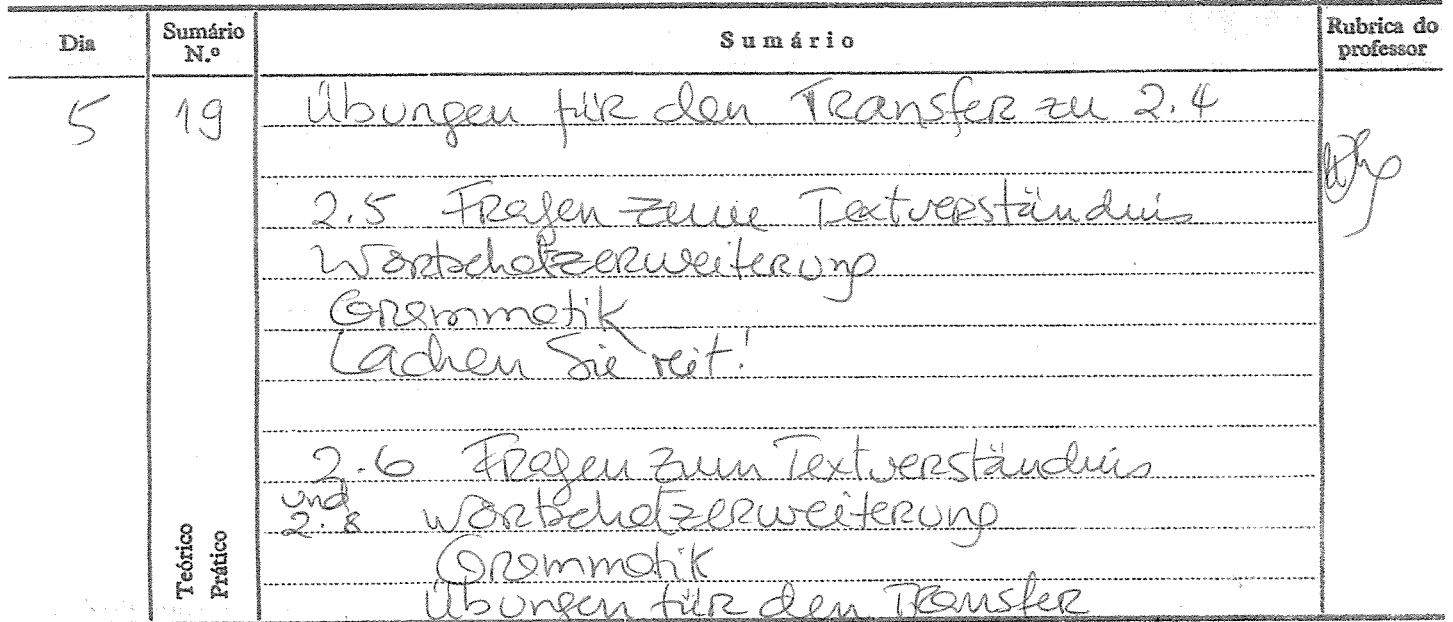 Dia
Sumário N.º
Sumário
Rubrica do professor
5
19
Übungen für den Transfer zu 2.4
2.5 Fragen zum Textverständnis
Wortschatzerweiterung
Grammatik
Lachen Sie mit!
2.6 Fragen zum Textverständnis
und 2.8 Wortschatzerweiterung
Grammatik
Übungen für den Transfer
Teórico
Prático